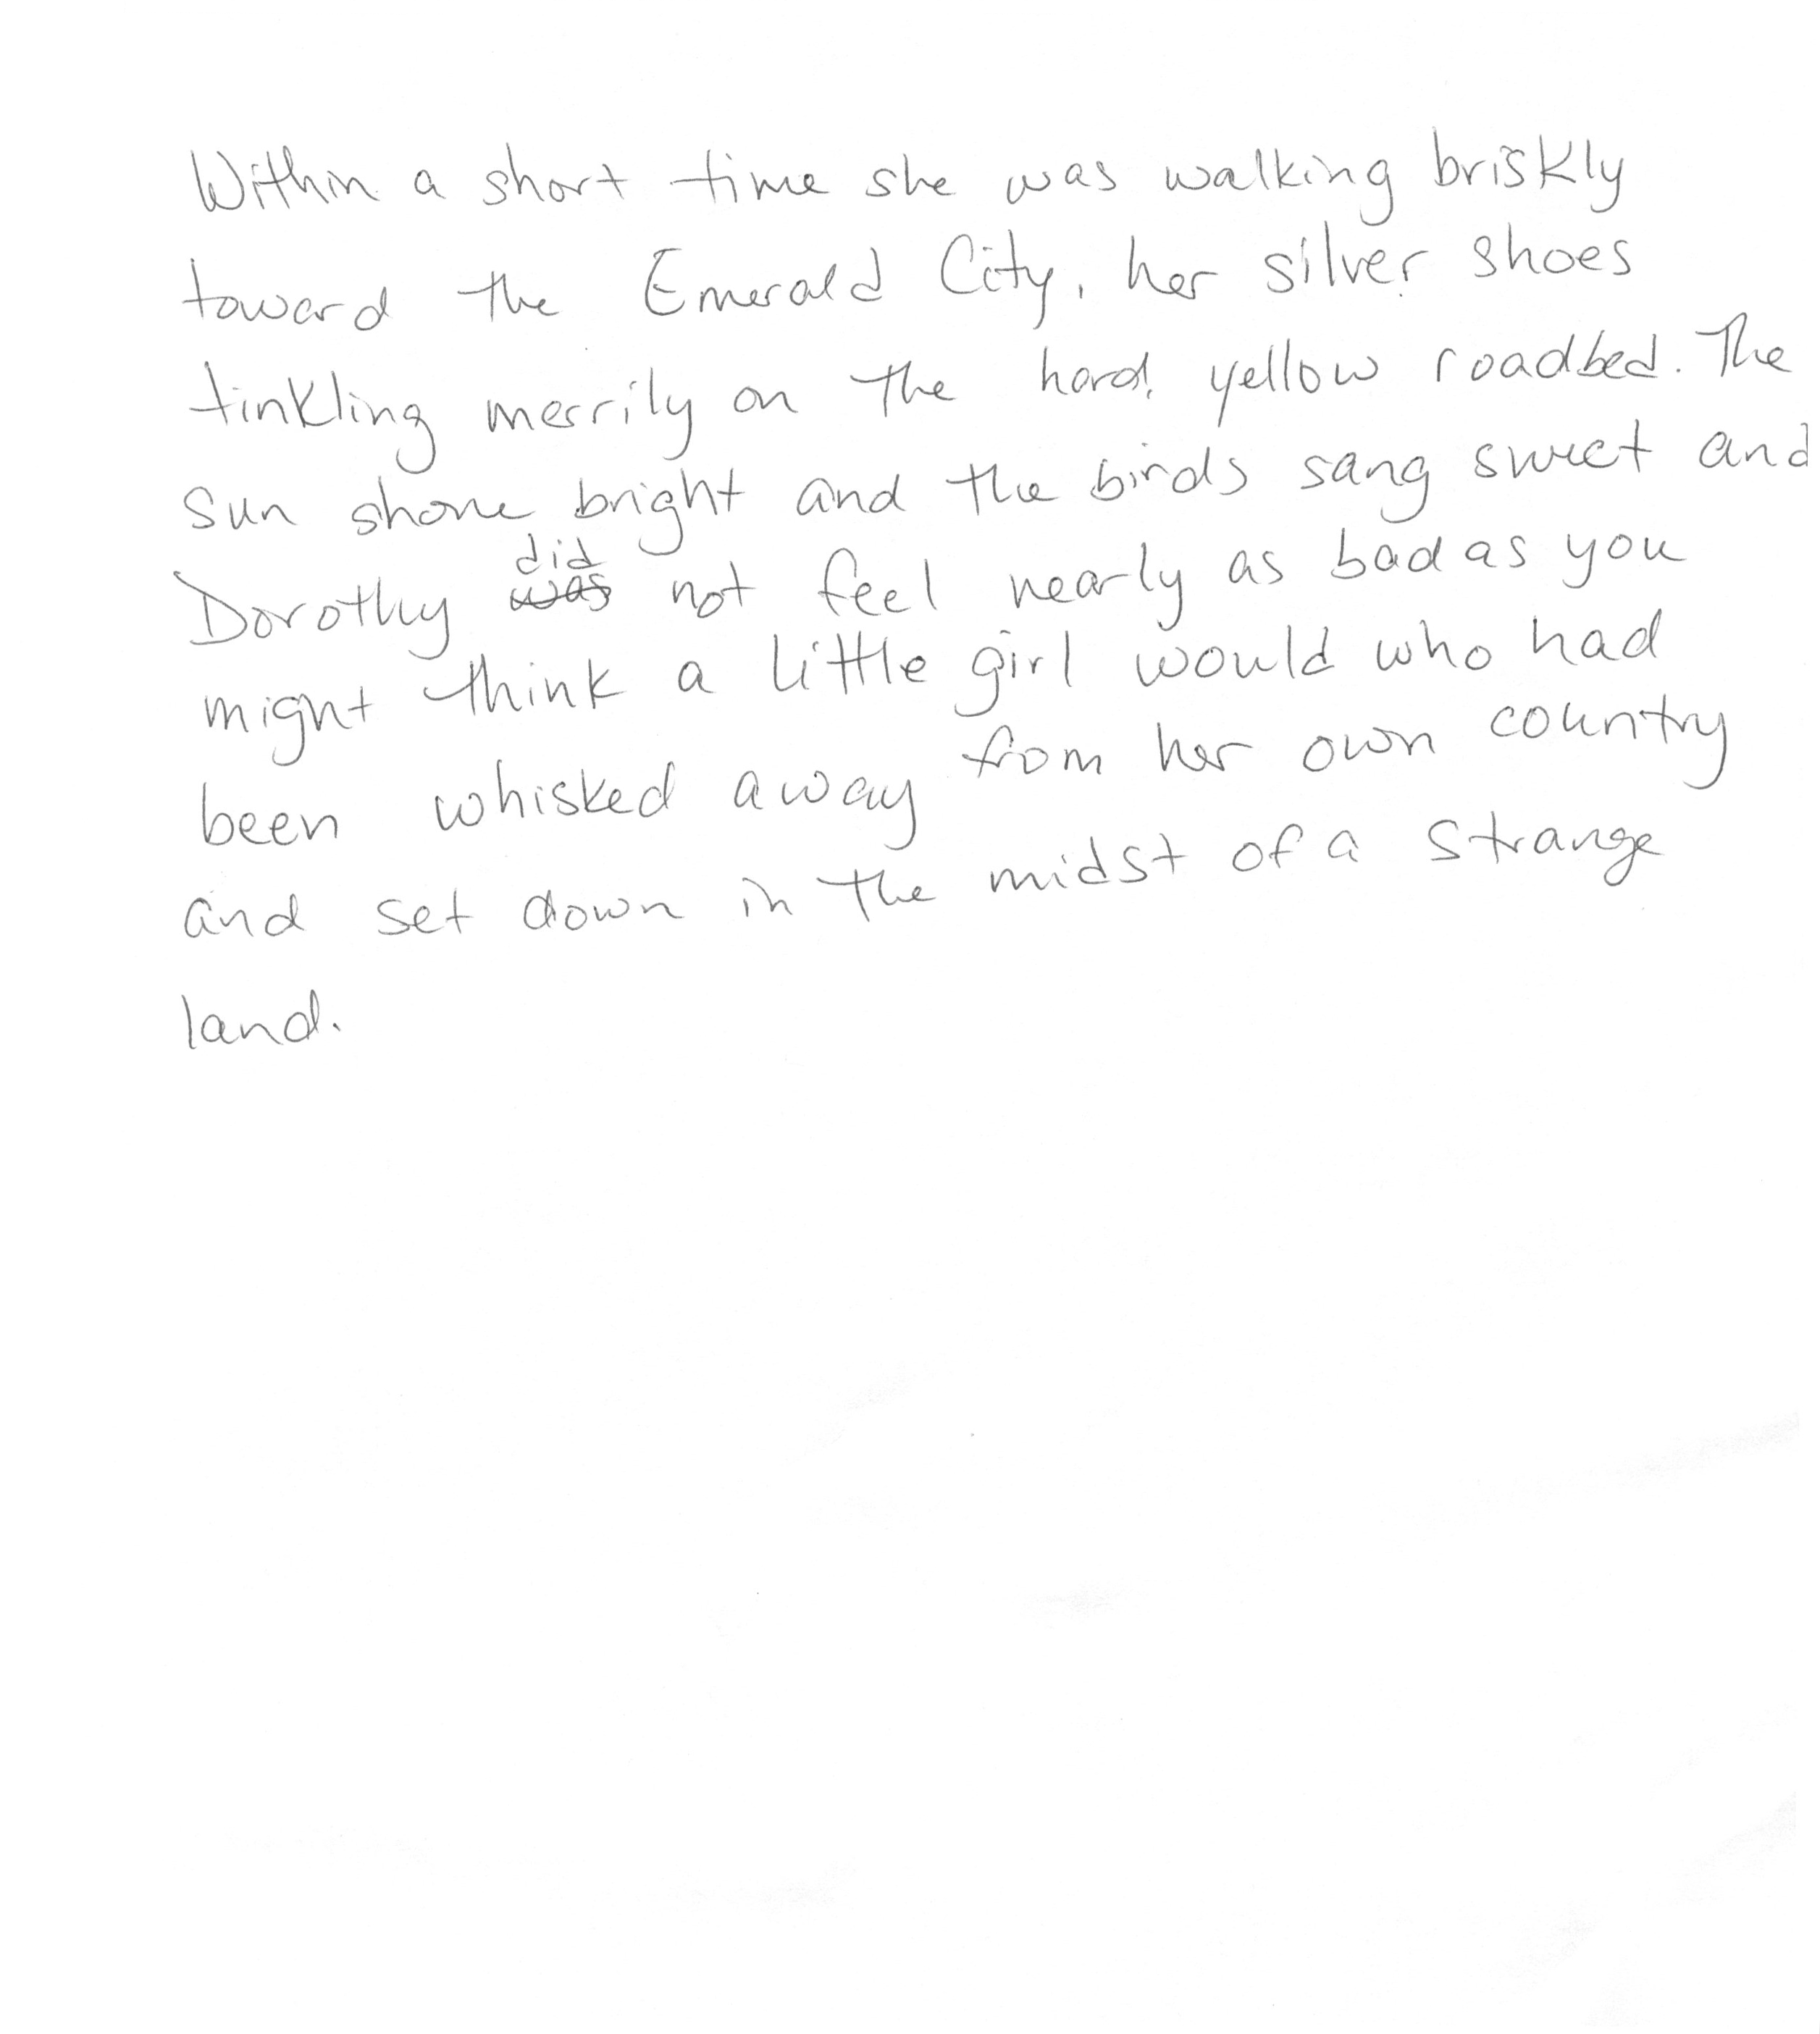 Within a short time she was walking briskly
toward the Emerald City, her silver shoes
tinkling merrily on the hard, yellow roadbed. The
sun shone bright and the birds sang sweet and
Dorothy ~~was~~ did not feel nearly as bad as you
might think a little girl would who had
been whisked away from her own country
and set down in the midst of a strange
land.